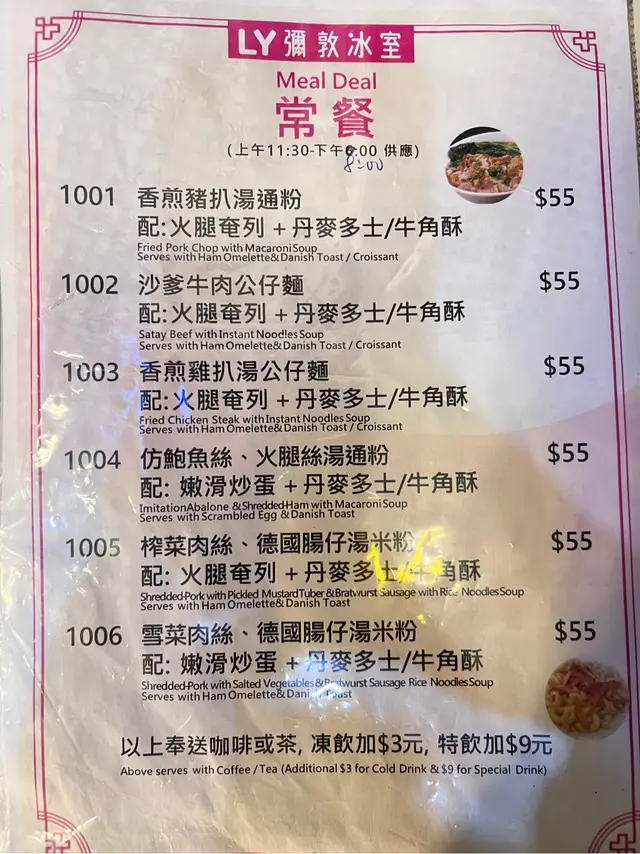 LY 彌敦冰室
Meal Deal
常餐
(上午11:30-下午6:00 供應)
8:00
1001 香煎豬扒湯通粉 $55
配:火腿奄列 + 丹麥多士/牛角酥
Fried Pork Chop with Macaroni Soup
Serves with Ham Omelette& Danish Toast / Croissant
1002 沙爹牛肉公仔麵 $55
配:火腿奄列 + 丹麥多士/牛角酥
Satay Beef with Instant Noodles Soup
Serves with Ham Omelette& Danish Toast / Croissant
1003 香煎雞扒湯公仔麵 $55
配:火腿奄列 + 丹麥多士/牛角酥
Fried Chicken Steak with Instant Noodles Soup
Serves with Ham Omelette& Danish Toast / Croissant
1004 仿鮑魚絲、火腿絲湯通粉 $55
配: 嫩滑炒蛋 + 丹麥多士/牛角酥
Imitation Abalone & Shredded Ham with Macaroni Soup
Serves with Scrambled Egg & Danish Toast
1005 榨菜肉絲、德國腸仔湯米粉 $55
配: 火腿奄列 + 丹麥多士/牛角酥
Shredded-Pork with Pickled Mustard Tuber & Bratwurst Sausage with Rice Noodles Soup
Serves with Ham Omelette& Danish Toast
1006 雪菜肉絲、德國腸仔湯米粉 $55
配: 嫩滑炒蛋 + 丹麥多士/牛角酥
Shredded-Pork with Salted Vegetables & Bratwurst Sausage Rice Noodles Soup
Serves with Ham Omelette& Danish Toast
以上奉送咖啡或茶, 凍飲加$3元, 特飲加$9元
Above serves with Coffee / Tea (Additional $3 for Cold Drink & $9 for Special Drink)